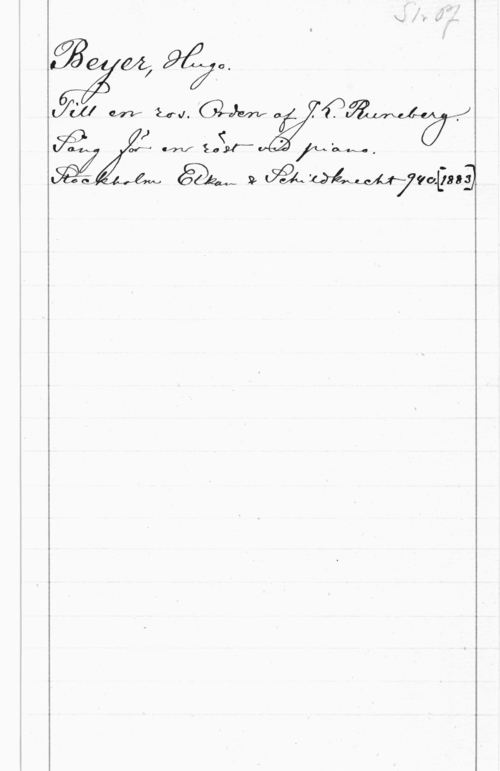 Sv. 67
Beyer, Hugo.
Till en ros. Orden af J. L. Runeberg.
Sång för en röst vid piano.
Stockholm Elkan & Schildknecht 940. [1883]